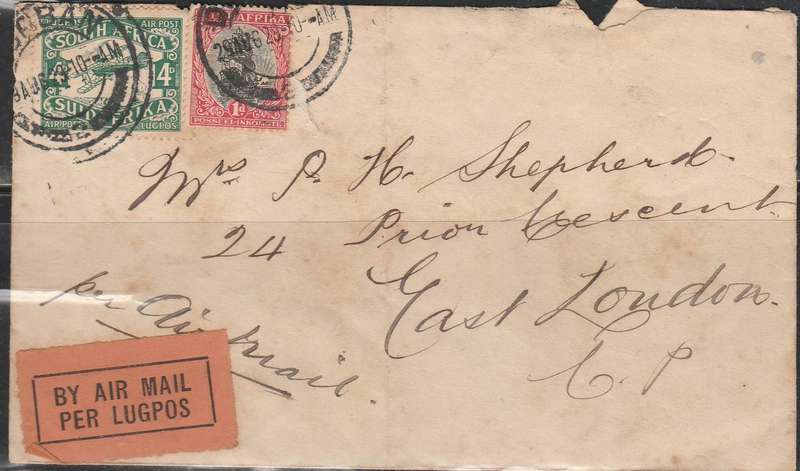 AIR POST
SOUTH AFRICA
4D
SUID AFRIKA
LUGPOS
AFRIKA
1d
POSSEEL-INKOMSTE
Mrs P. H. Shepherd
24 Prior Crescent
East London.
C. P
per Air Mail.
BY AIR MAIL
PER LUGPOS